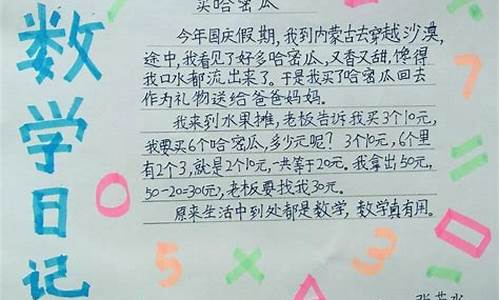 数学日记
买哈密瓜
今年国庆假期，我到内蒙古去穿越沙漠，
途中，我看见了好多哈密瓜，又香又甜，馋得
我口水都流出来了。于是我买了哈密瓜回去
作为礼物送给爸爸妈妈。
我来到水果摊，老板告诉我买3个10元，
我要买6个哈密瓜，多少元呢？3个10元，6个里
有2个3，就是2个10元，一共等于20元。我拿出50元，
50-20=30(元)，老板要找我30元。
原来生活中到处都是数学，数学真有用。
7
=
1
5
×
3
÷